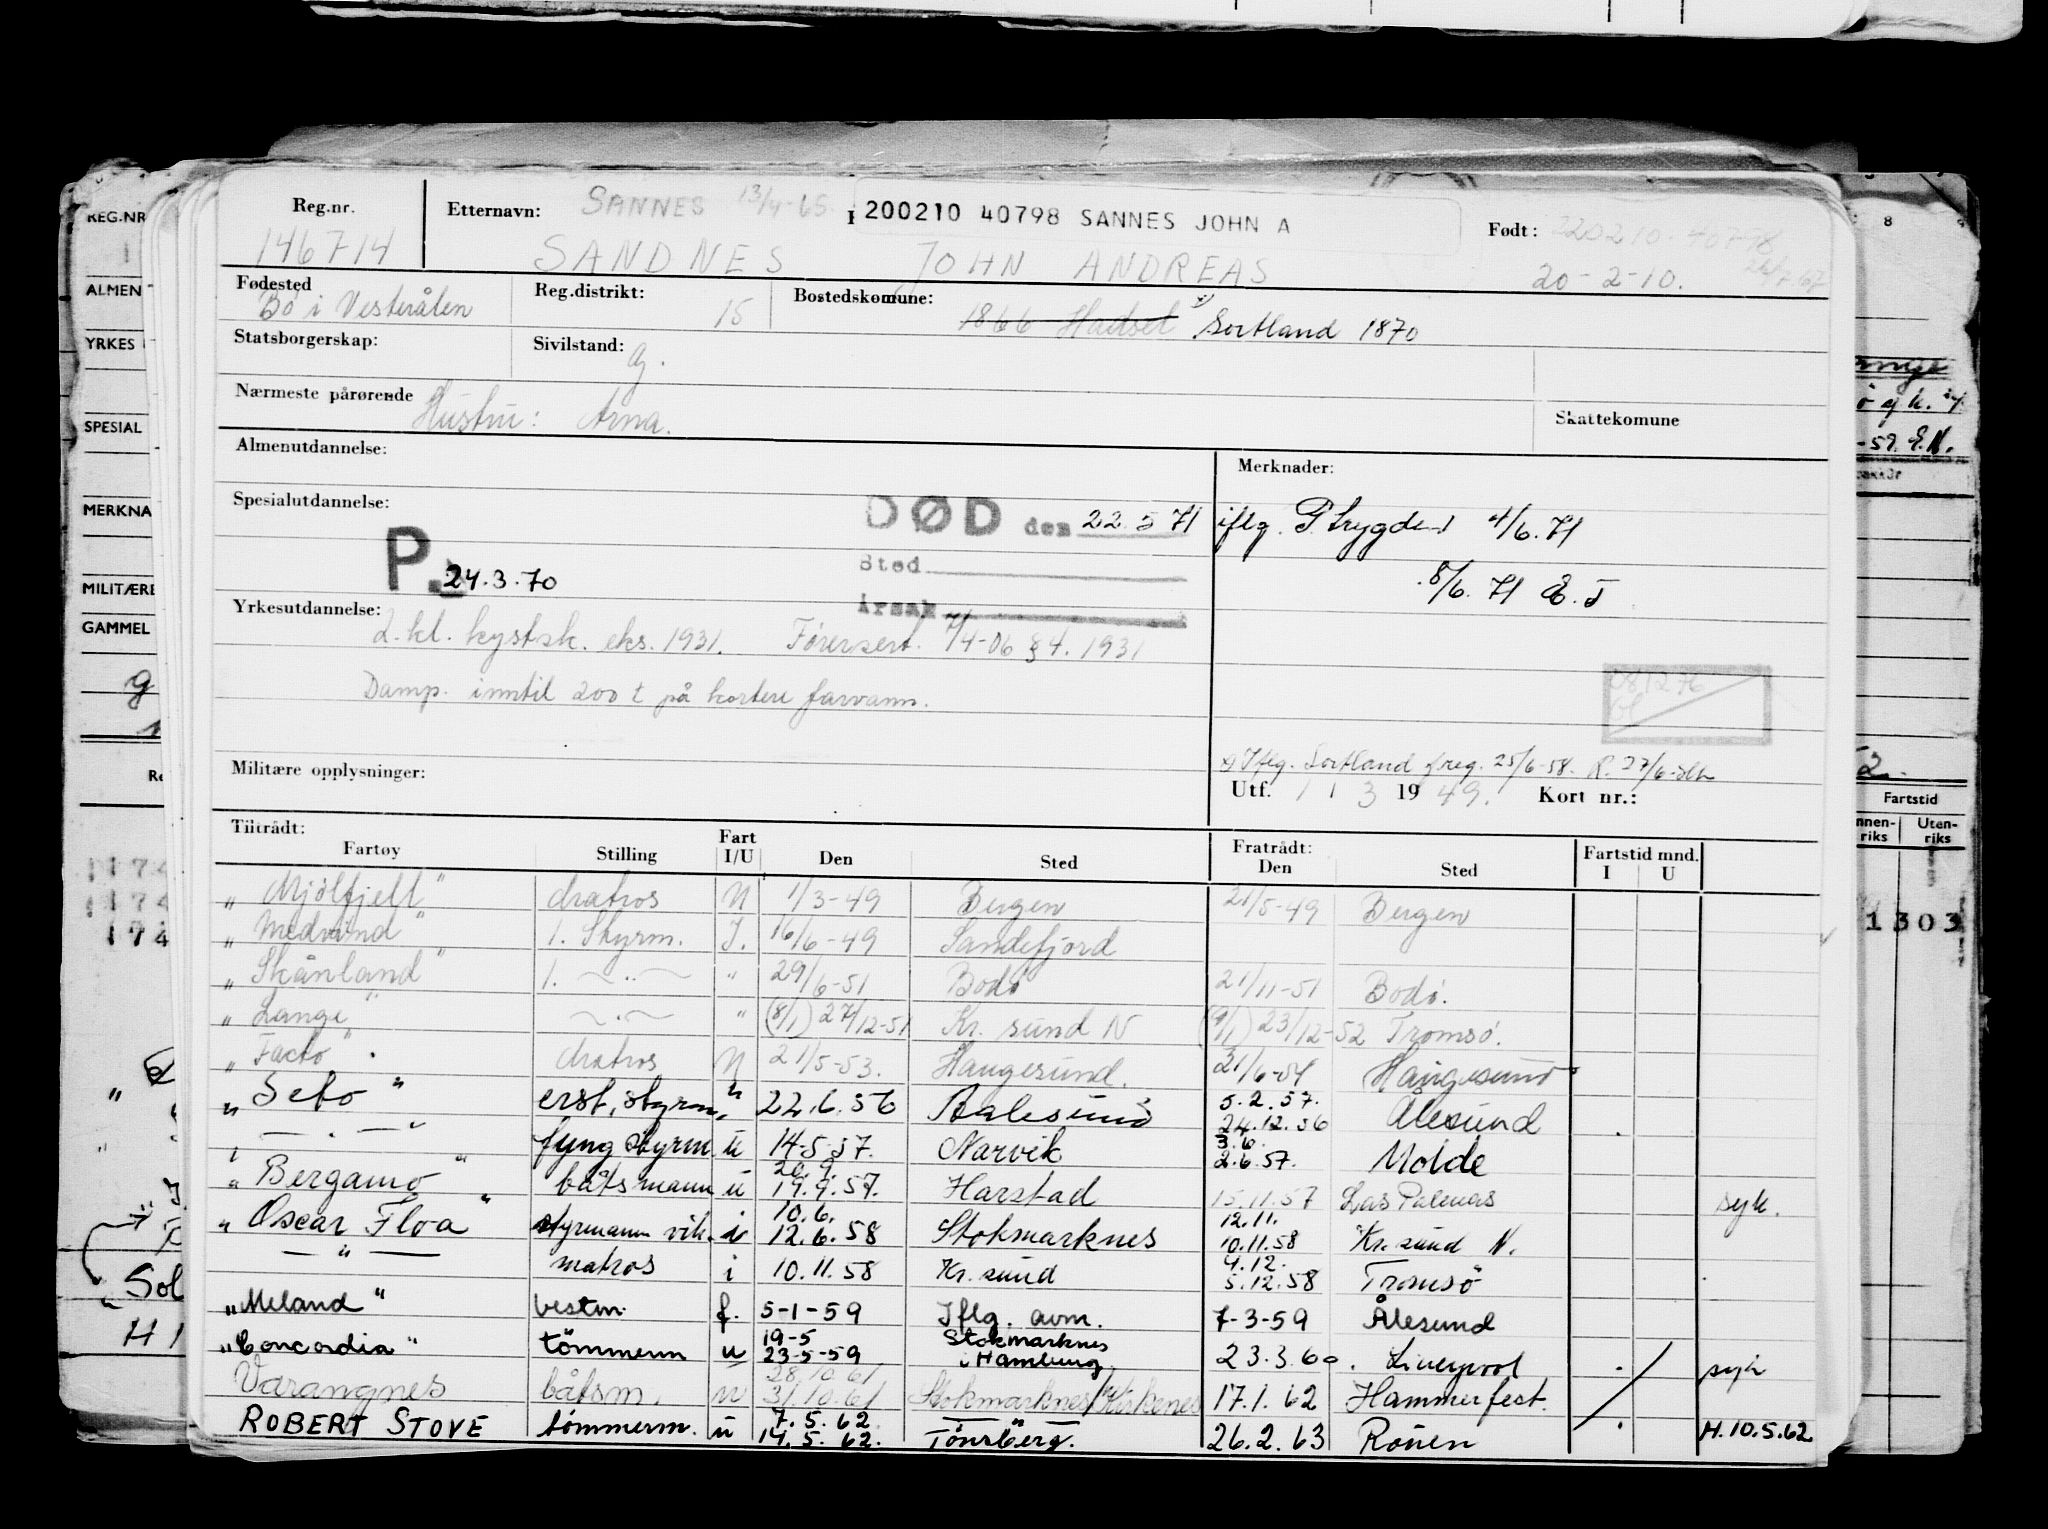 Reg.nr. Etternavn: SANNES 13/4-65. 200210 40798 SANNES JOHN A Født: 220210-40798
146714 SANDNES JOHN ANDREAS 20-2-10.
Fødested Reg.distrikt: Bostedskomune:
Bø i Vesterålen 15 1866 Hadsel x) Sortland 1870
Statsborgerskap: Sivilstand: g.
Nærmeste pårørende
Hustru: Arna. Skattekomune
Almenutdannelse: Merknader:
Spesialutdannelse: DØD den 22.5 71 iflg. P trygden 4/6.71
P. 24.3.70 Sted 8/6. 71 E.J
Yrkesutdannelse: Årsak
2. kl. kystsk. eks. 1931. Førersert. 7/4-06 § 4. 1931
Damp. inntil 200 t på kortere farvann.
081276
x) Iflg. Sortland freg. 25/6-58. R. 27/6-
Militære opplysninger: Utf. 1 / 3 1949. Kort nr.:
Tiltrådt: Fratrådt: Fartstid mnd.
Fartøy Stilling Fart I/U Den Sted Den Sted I U
" Mjölfjell" Matros U 1/3-49 Bergen 21/5-49 Bergen
" Medvind" 1. Styrm. I. 16/6-49 Sandefjord
" Skånland" 1. — " — " 29/6-51 Bodø 21/11-51 Bodø.
" Lange" — " — " (8/1) 27/12-51 Kr. sund N (9/1) 23/12-52 Tromsø.
" Facto" Matros U 21/5-53. Haugesund. 21/6-54 Haugesund
" Seto " erst. styrm. " 22.6.56 Aalesund 5.2.57. 24.12.56 Ålesund
" — " — fung styrm u 14-5-57. Narvik 3.6. 2.6.57. Molde
" Bergamo " båtsmann u 20.9. 19.9.57. Harstad 15.11.57 Las Palmas syk.
" Oscar Floa " styrmann vik. i 10.6. 12.6.58 Stokmarknes 12.11. 10.11.58 Kr. sund N.
— " — matros i 10.11.58 Kr. sund 4.12. 5.12.58 Tromsö
"Meland" bestm. f. 5-1-59 Iflg. avm. 7-3-59 Ålesund
"Concordia" tömmerm u 19-5 23-5-59 Stokmarknes i Hamburg 23.3.60. Liverpool syk
Varangnes båtsm. u 28.10.61 31.10.61 Stokmarknes/Kirkenes 17.1.62 Hammerfest.
ROBERT STOVE tömmerm. u 7.5.62. 14.5.62. Tönsberg. 26.2.63 Rouen H.10.5.62
REG.NR
ALMEN
YRKES
SPESIAL
MERKNA
MILITÆRE
GAMMEL
174
174
174
Sol
8
-59. E.N.
Fartstid
Uten-
riks
1303